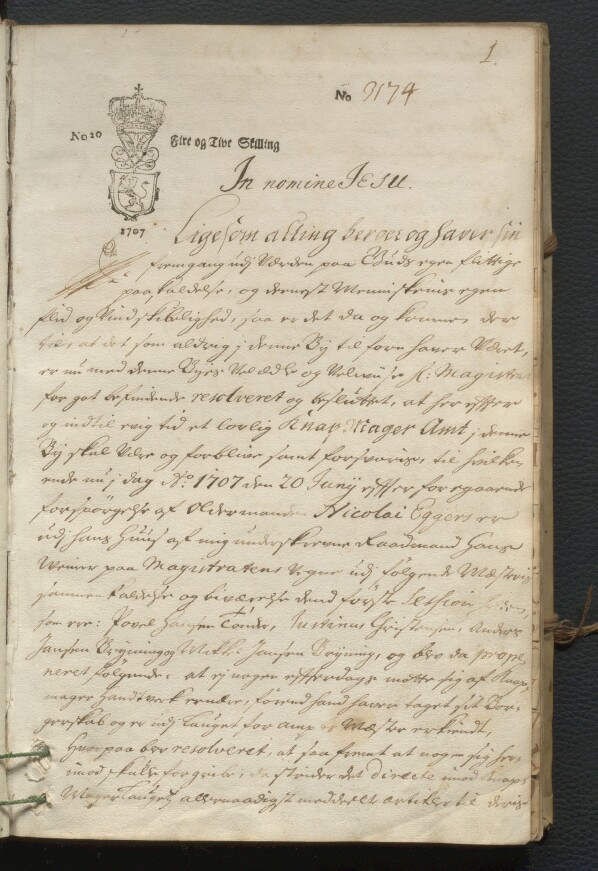 1.
No 3174
No 20
Fire og Tive Skilling
1707
In nomine JESU.
Ligesom alting beroer og haver sin
fremgang udj Verden paa Guds egen
paakaldelse, og dernest Menniskens egen
flid og Vindskibelighed, saa er det da og kommen der
til, at det som aldrig j denne By til forn haver Været,
er nu med denne Byes Velædle og Velviise H: Magistrat
for got befindende resolveret og besluttet, at her effter
og indtil evig tid et lovlig Knap-Mager Amt j denne
By skal Være og forblive samt forsvaris, til hvilken
ende nu j dag Ao 1707 den 20 Junij effter foregaaende
forspørgelse af Oldermanden Nicolai Eggers er
udj hans Huus af mig underskrevne Raadmand Hans
Weiner paa Magistratens Vegne udj følgende Mæsteris
sammenkaldelse og biværelse dend første Session
som ere: Povel Hansen Tønder, Justinus Christensen, Anders
Jansen og Jansen, og blev da propo
neret følgende: at ej nogen effterdags motte sig af Knap
mager Handtverk, førend hand haver taget sit Bor-
gerskab og er udj Lauget for Mæster erkiendt,
Hvorpaa blev resolveret, at saafremt at nogen sig her
imod skulle forgribe, da strider det directe imod Knap
Mager Laugets allernaadigst meddeelt artikler til deris